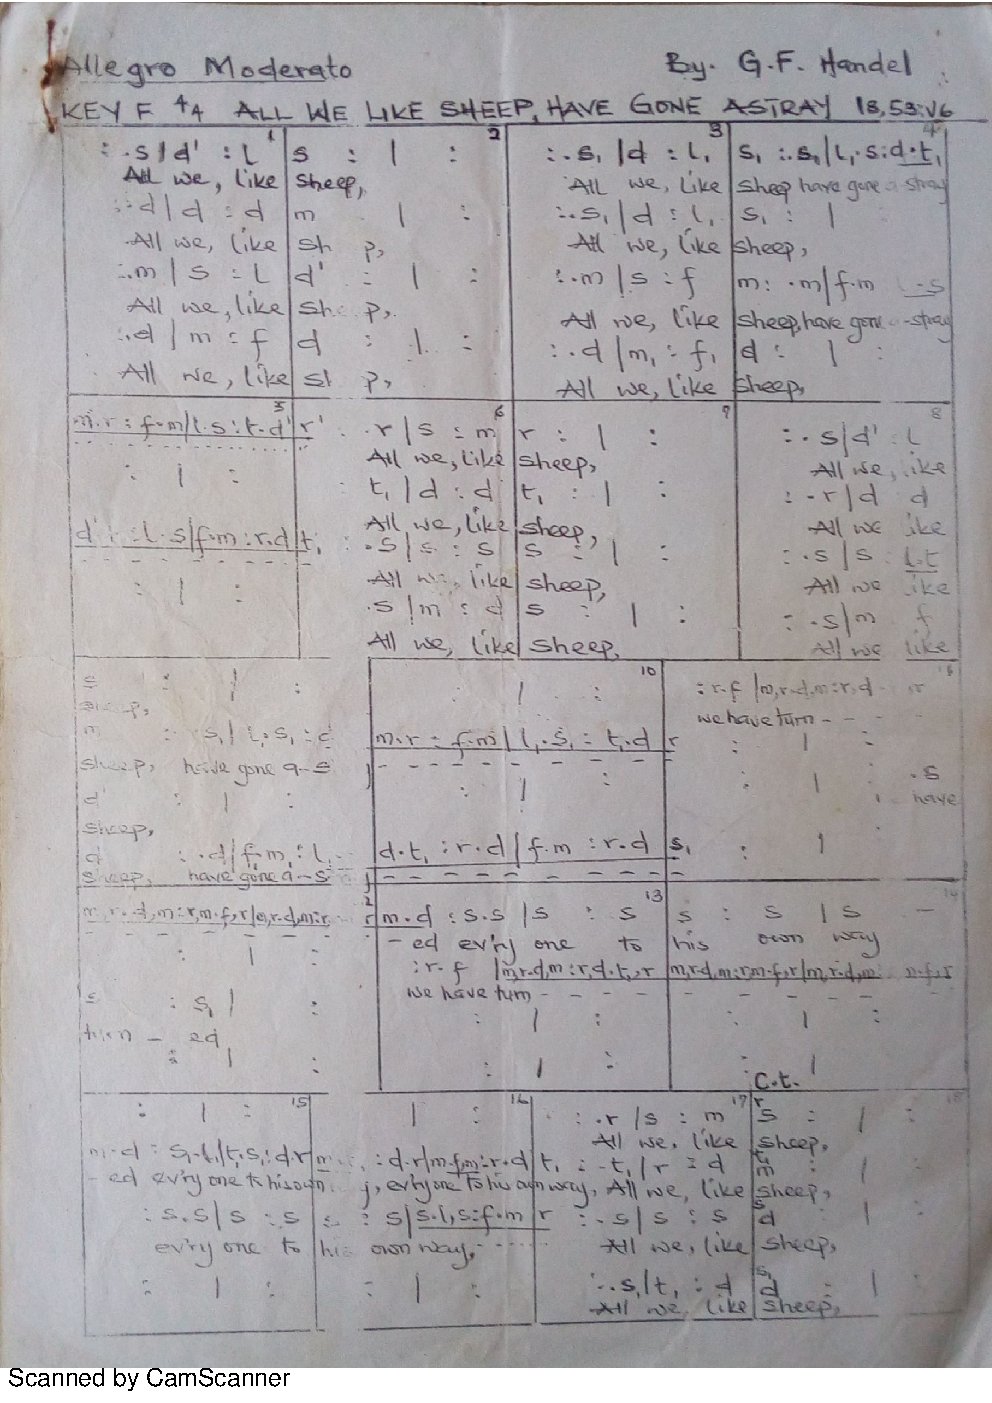 Allegro Moderato By. G.F. Handel
KEY F 4/4 ALL WE LIKE SHEEP, HAVE GONE ASTRAY 18,53:V6
1 2 3 4
:.s|d' :l s : | : :.s₁|d :l₁ s₁ :.s₁|l₁.s:d.t₁
All we, like sheep, All we, like sheep have gone a-stray
:.d|d :d m | : :.s₁|d :l₁ s₁ : |
All we, like All we, like sheep,
:.m|s :l d' : | : :.m|s :f m: .m|f.m l.s
All we, like All we, like sheep, have gone a-stray
:.d|m :f d : | : :.d|m₁ :f₁ d : | :
All we, like All we, like sheep,
5 6 7 8
m.r :f.m|l.s :t.d'|r' .r|s :m r : | : :.s|d' :l
All we, like sheep, All we, like
: | : t₁|d :d t₁ : | : :.r|d d
All we, like sheep, All we like
d' :l.s|f.m :r.d|t₁ : .s|s :s s : | : :.s|s l.t
All we, like sheep, All we like
: | : .s|m :d s : | : :.s|m f
All we, like sheep, All we like
10
s : | : : | : :r.f|m,r.d,m:r,d r
we have turn - - -
: .s₁|l₁.s₁ :d m.r :f.m|l₁.s₁ :t₁.d r : | :
sheep, have gone a-s
d' : | : : | : : | .s
sheep, have
d :.d|f.m :l₁ d.t₁ :r.d|f.m :r.d s₁ : |
sheep, have gone a-s
13 14
m,r.d,m:r,m.f,r|m,r.d,m:r r m.d :s.s|s :s s : s|s -
-ed ev'ry one to his own way
: | : :r.f|m,r.d,m:r,d.t₁,r m,r.d,m:r,m.f,r|m,r.d,m: m.f,r
we have turn - - - - -
s : s₁| : : | : : | :
turn - ed
: | : : | : : |
C.t.
15 16 17 18
: | : | : :.r|s :m s : | :
All we, like sheep,
m.d :s₁.l₁|t₁.s₁:d.r :d.r|m.f,m:r.d|t₁ :.t₁|r :d m : | :
-ed ev'ry one to his own ev'ry one to his own way, All we, like sheep,
:s.s|s :s s :s|s.l,s:f.m|r :.s|s :s d : | :
ev'ry one to his own way, All we, like sheep,
: | : : | : :.s₁|t₁ :d d : | :
All we, like sheep,
Scanned by CamScanner